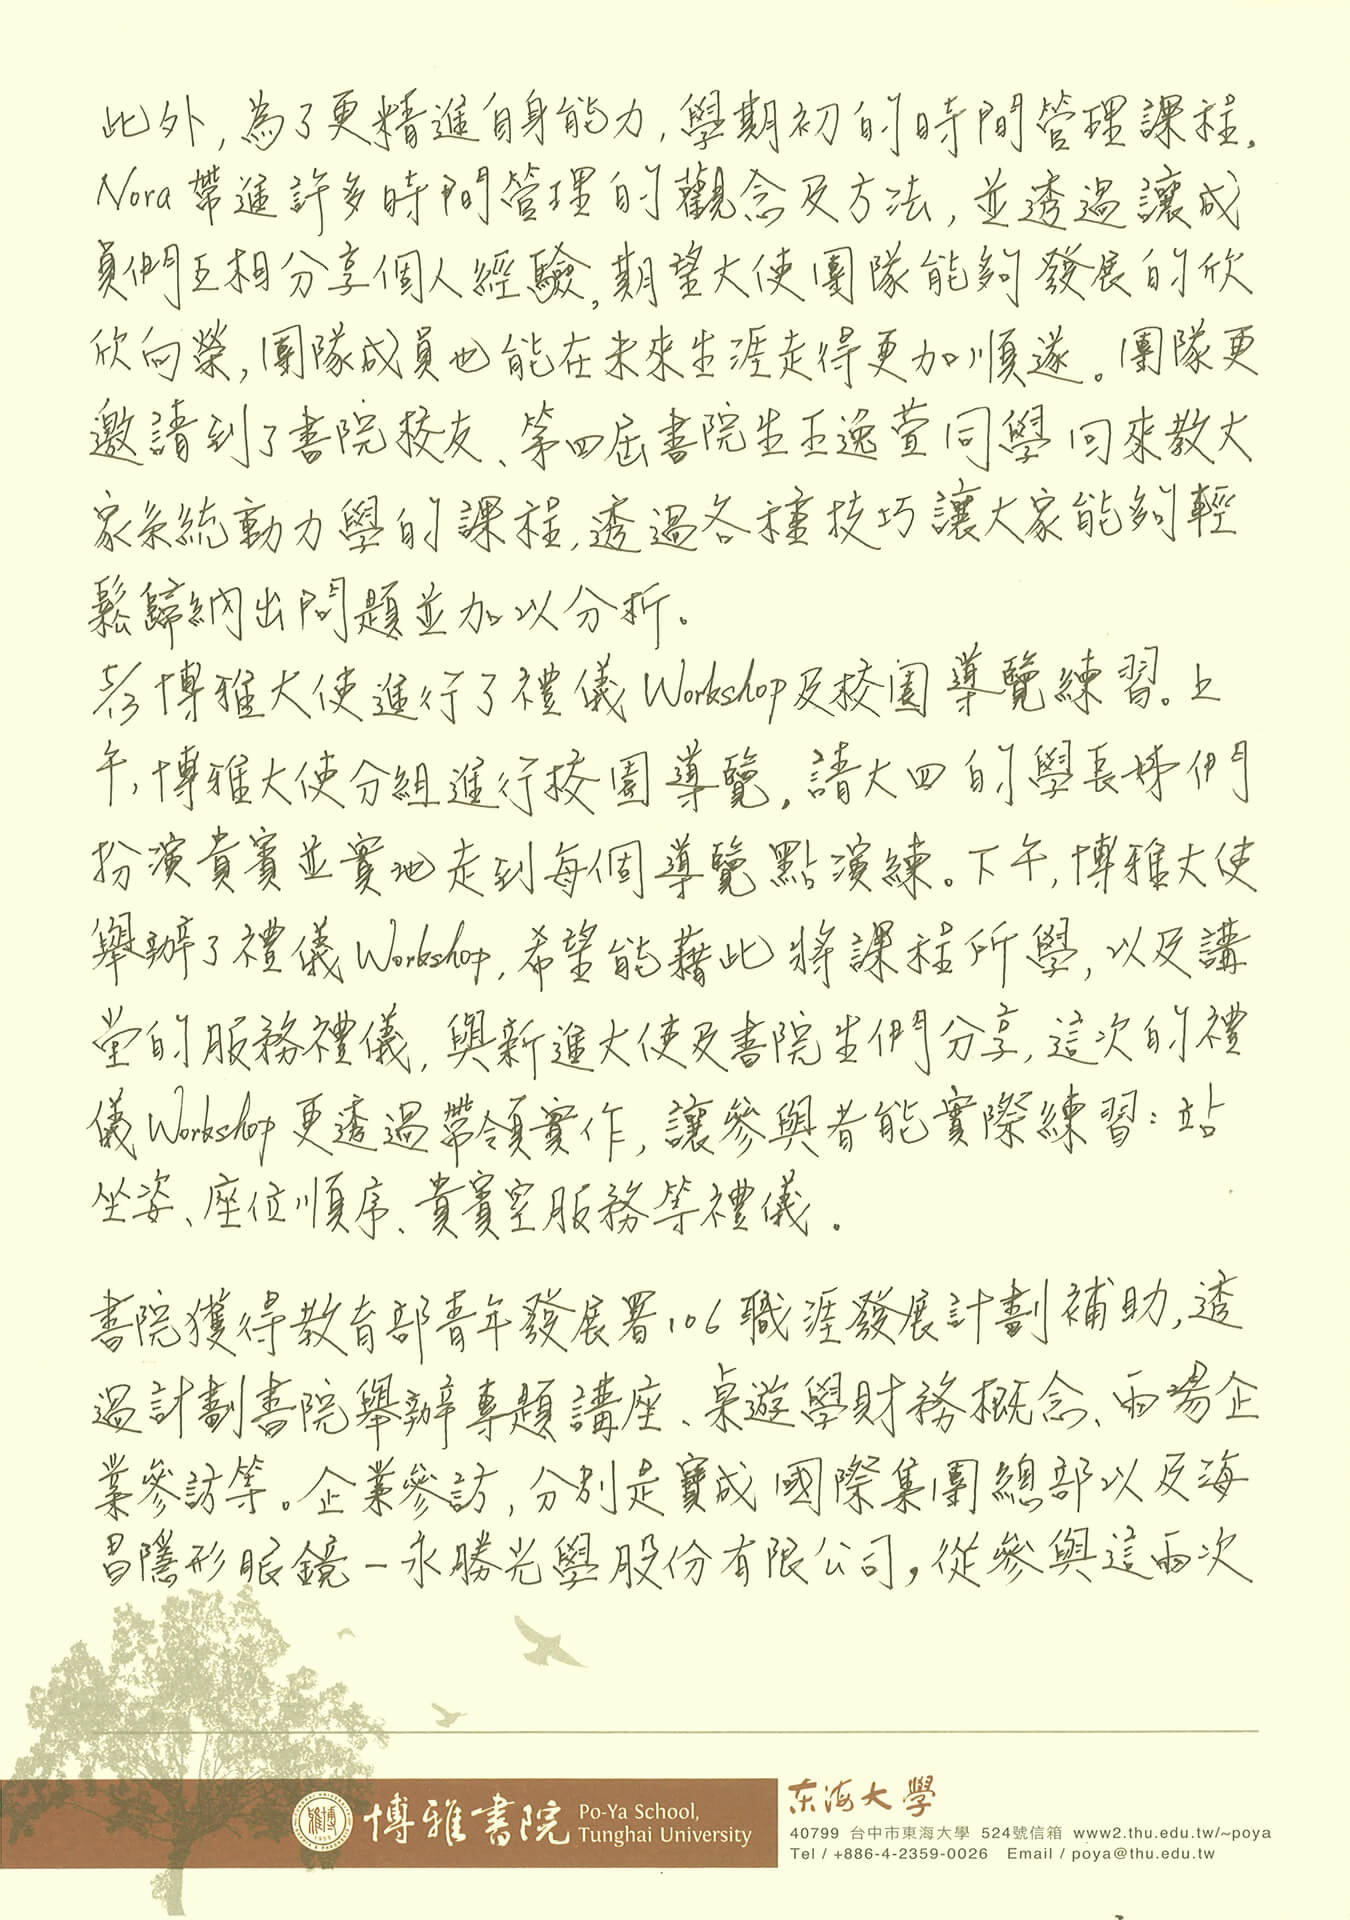 此外,為了更精進自身能力,學期初的時間管理課程,
Nora帶進許多時間管理的觀念及方法,並透過讓成
員們互相分享個人經驗,期望大使團隊能夠發展的欣
欣向榮,團隊成員也能在未來生涯走得更加順遂。團隊更
邀請到了書院校友、第四屆書院生王逸萱同學回來教大
家系統動力學的課程,透過各種技巧讓大家能夠輕
鬆歸納出問題並加以分析。
5/13博雅大使進行了禮儀Workshop及校園導覽練習。上
午,博雅大使分組進行校園導覽,請大四的學長姊們
扮演貴賓並實地走到每個導覽點演練。下午,博雅大使
舉辦了禮儀Workshop,希望能藉此將課程所學,以及講
堂的服務禮儀,與新進大使及書院生們分享,這次的禮
儀Workshop更透過帶領實作,讓參與者能實際練習:站
坐姿、座位順序、貴賓室服務等禮儀。
書院獲得教育部青年發展署106職涯發展計劃補助,透
過計劃書院舉辦專題講座、桌遊學財務概念、兩場企
業參訪等。企業參訪,分別是寶成國際集團總部以及海
昌隱形眼鏡-永勝光學股份有限公司,從參與這兩次
博雅書院 Po-Ya School,
Tunghai University
东海大學
40799 台中市東海大學 524號信箱 www2.thu.edu.tw/~poya
Tel / +886-4-2359-0026 Email / poya@thu.edu.tw